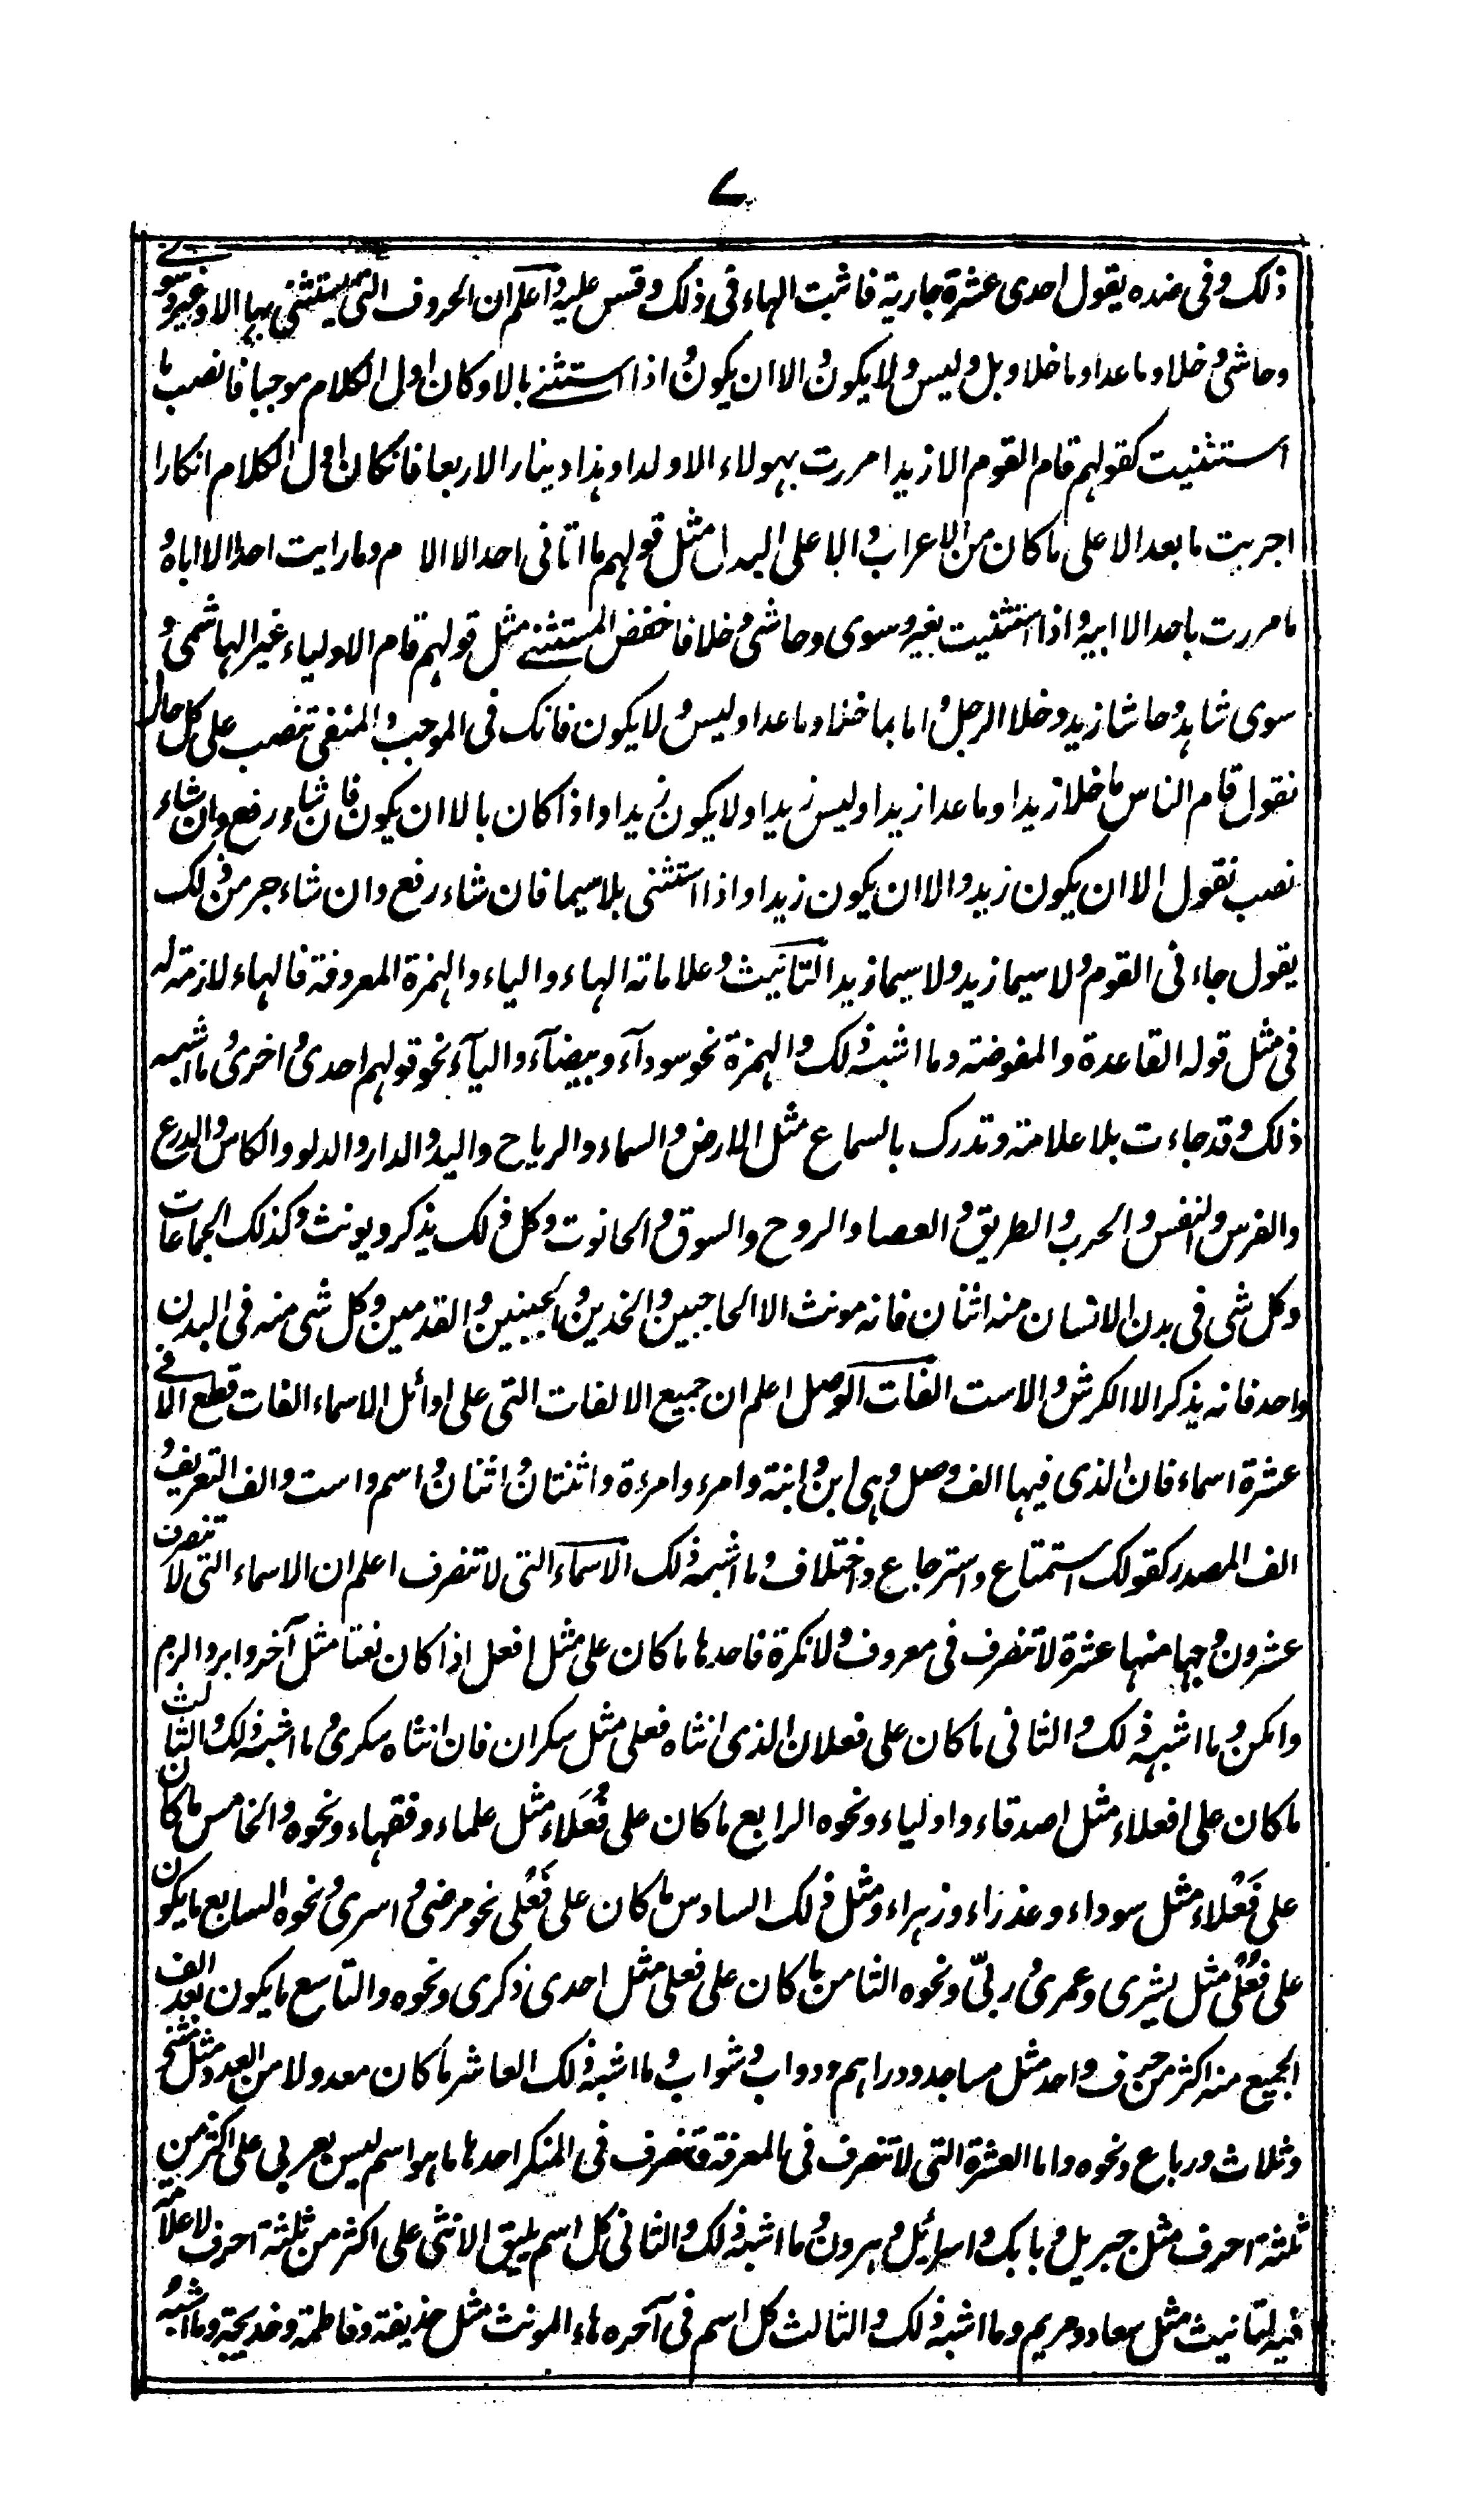 ٧
ذلك وفى ضده يقول احدى عشرة جارية فاثبت الهاء فى ذلك وقس عليه واعلم ان الحروف التى يستثنى بها الا وغير وسوى
وحاشى وخلا وما عدا وما خلا وبل وليس ولا يكون والا ان يكون اذا استثنى بالا وكان اول الكلام موجبا فانصب ما
استثنيت كقولهم قام القوم الا زيدا مررت بهولاء الا ولدا وهذا دينار الا ربعا فان كان اول الكلام انكارا
اجريت ما بعد الا على ما كان من الاعراب الا على البدل مثل قولهم ما اتانى احد الا الا م وما رايت احدا الا اباه و
ما مررت باحد الا ابيه واذا استثنيت بغير وسوى وحاشى وخلا فاخفض المستثنى مثل قولهم قام الاولياء غير الهاشمى و
سوى شاهد وحاشا زيد وخلا الرجل واما بما خلا وما عدا وليس ولا يكون فانك فى الموجب والمنفى تنصب على كل حال
نقول قام الناس ما خلا زيدا وما عدا زيدا وليس زيدا ولا يكون زيدا واذا كان بالا ان يكون فان شاء رفع وان شاء
نصب نقول الا ان يكون زيد والا ان يكون زيدا واذا استثنى بلاسيما فان شاء رفع وان شاء جر من ذلك
يقول جاء فى القوم ولا سيما زيد ولا سيما زيد التانيث وعلاماته الهاء والياء والهمزة المعروفة فالهاء لازمته له
فى مثل قوله القاعدة والمفوضة وما اشبه ذلك والهمزة نحو سودآء وبيضآء والياء نحو قولهم احدى واخرى وما اشبه
ذلك وقد جاءت بلا علامة وتدرك بالسماع مثل الارض والسماء والرياح واليد والدار والدلو والكاس والدرع
والفرس والنفس والحرب والطريق والعصا والروح والسوق والحانوت وكل ذلك يذكر ويونث وكذلك الجماعات
وكل شى فى بدن الانسان منه اثنان فانه مونث الا الحاجبين والخدين والجبينين والقدمين وكل شى منه فى البدن
واحد فانه يذكر الا الكرش والاست الفات الوصل اعلم ان جميع الالفات التى على اوائل الاسماء الفات قطع الا فى
عشرة اسماء فان الذى فيها الف وصل وهى ابن وابنة وامرء وامرءة واثنتان واثنان واسم واست والف التعريف و
الف المصدر كقولك استمتاع واسترجاع واختلاف وما اشبه ذلك الاسماء التى لا تنصرف اعلم ان الاسماء التى لا تنصرف
عشرون وجها منها عشرة لا تنصرف فى معروف ولا نكرة فاحدها ما كان على مثل افعل اذا كان نعتا مثل آخر وابر والزم
وامكن وما اشبه ذلك والثانى ما كان على فعلان الذى انثاه فعلى مثل سكران فان انثاه سكرى وما اشبه ذلك والثالث
ما كان على افعلاء مثل اصدقاء واولياء ونحوه الرابع ما كان على فُعَلاء مثل علماء وفقهاء ونحوه والخامس ما كان
على فَعْلاء مثل سوداء وعذراء وزهراء ومثل ذلك السادس ما كان على فَعْلى نحو مرضى واسرى ونحوه السابع ما يكون
على فُعْلى مثل بشرى وعمرى وربّى ونحوه الثامن ما كان على فعلى مثل احدى ذكرى ونحوه والتاسع ما يكون بعد الف
الجميع منه اكثر من حرف واحد مثل مساجد ودراهم ودواب وشواب وما اشبه ذلك العاشر ما كان معدولا من العدد مثل مثنى
وثلاث ورباع ونحوه واما العشرة التى لا تنصرف فى المعرفة وتنصرف فى المنكر احدها ما هو اسم ليس بعربى على اكثر من
ثلثة احرف مثل جبريل وبابك واسرائيل وهرون وما اشبه ذلك والثانى كل اسم يليق الانثى على اكثر من ثلثة احرف لا علامة
فيه لتانيث مثل سعاد ومريم وما اشبه ذلك والثالث كل اسم فى آخره هاء المونث مثل حذيفة وفاطمة وخديجة وما اشبه